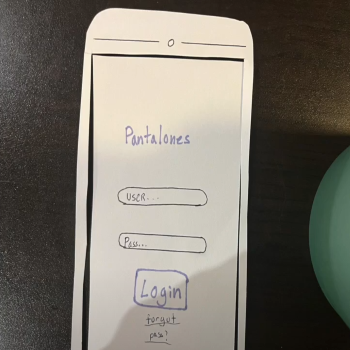 Pantalones
USER...
Pass...
Login
forgot
pass?